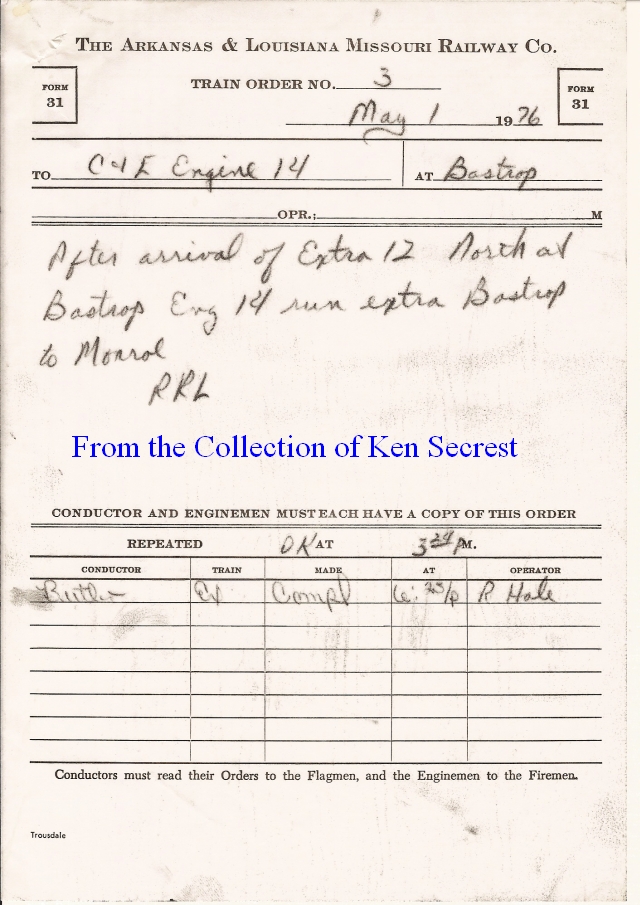 THE ARKANSAS & LOUISIANA MISSOURI RAILWAY CO.
FORM 31
TRAIN ORDER NO. 3
FORM 31
May 1 1976
TO C&E Engine 14 AT Bastrop
OPR.; M
After arrival of Extra 12 North at
Bastrop Eng 14 run extra Bastrop
to Monroe
RRL
From the Collection of Ken Secrest
CONDUCTOR AND ENGINEMEN MUST EACH HAVE A COPY OF THIS ORDER
REPEATED OK AT 3 24 P M.
CONDUCTOR TRAIN MADE AT OPERATOR
Butler Ex Compl 6:23/p R Hale
Conductors must read their Orders to the Flagmen, and the Enginemen to the Firemen.
Trousdale